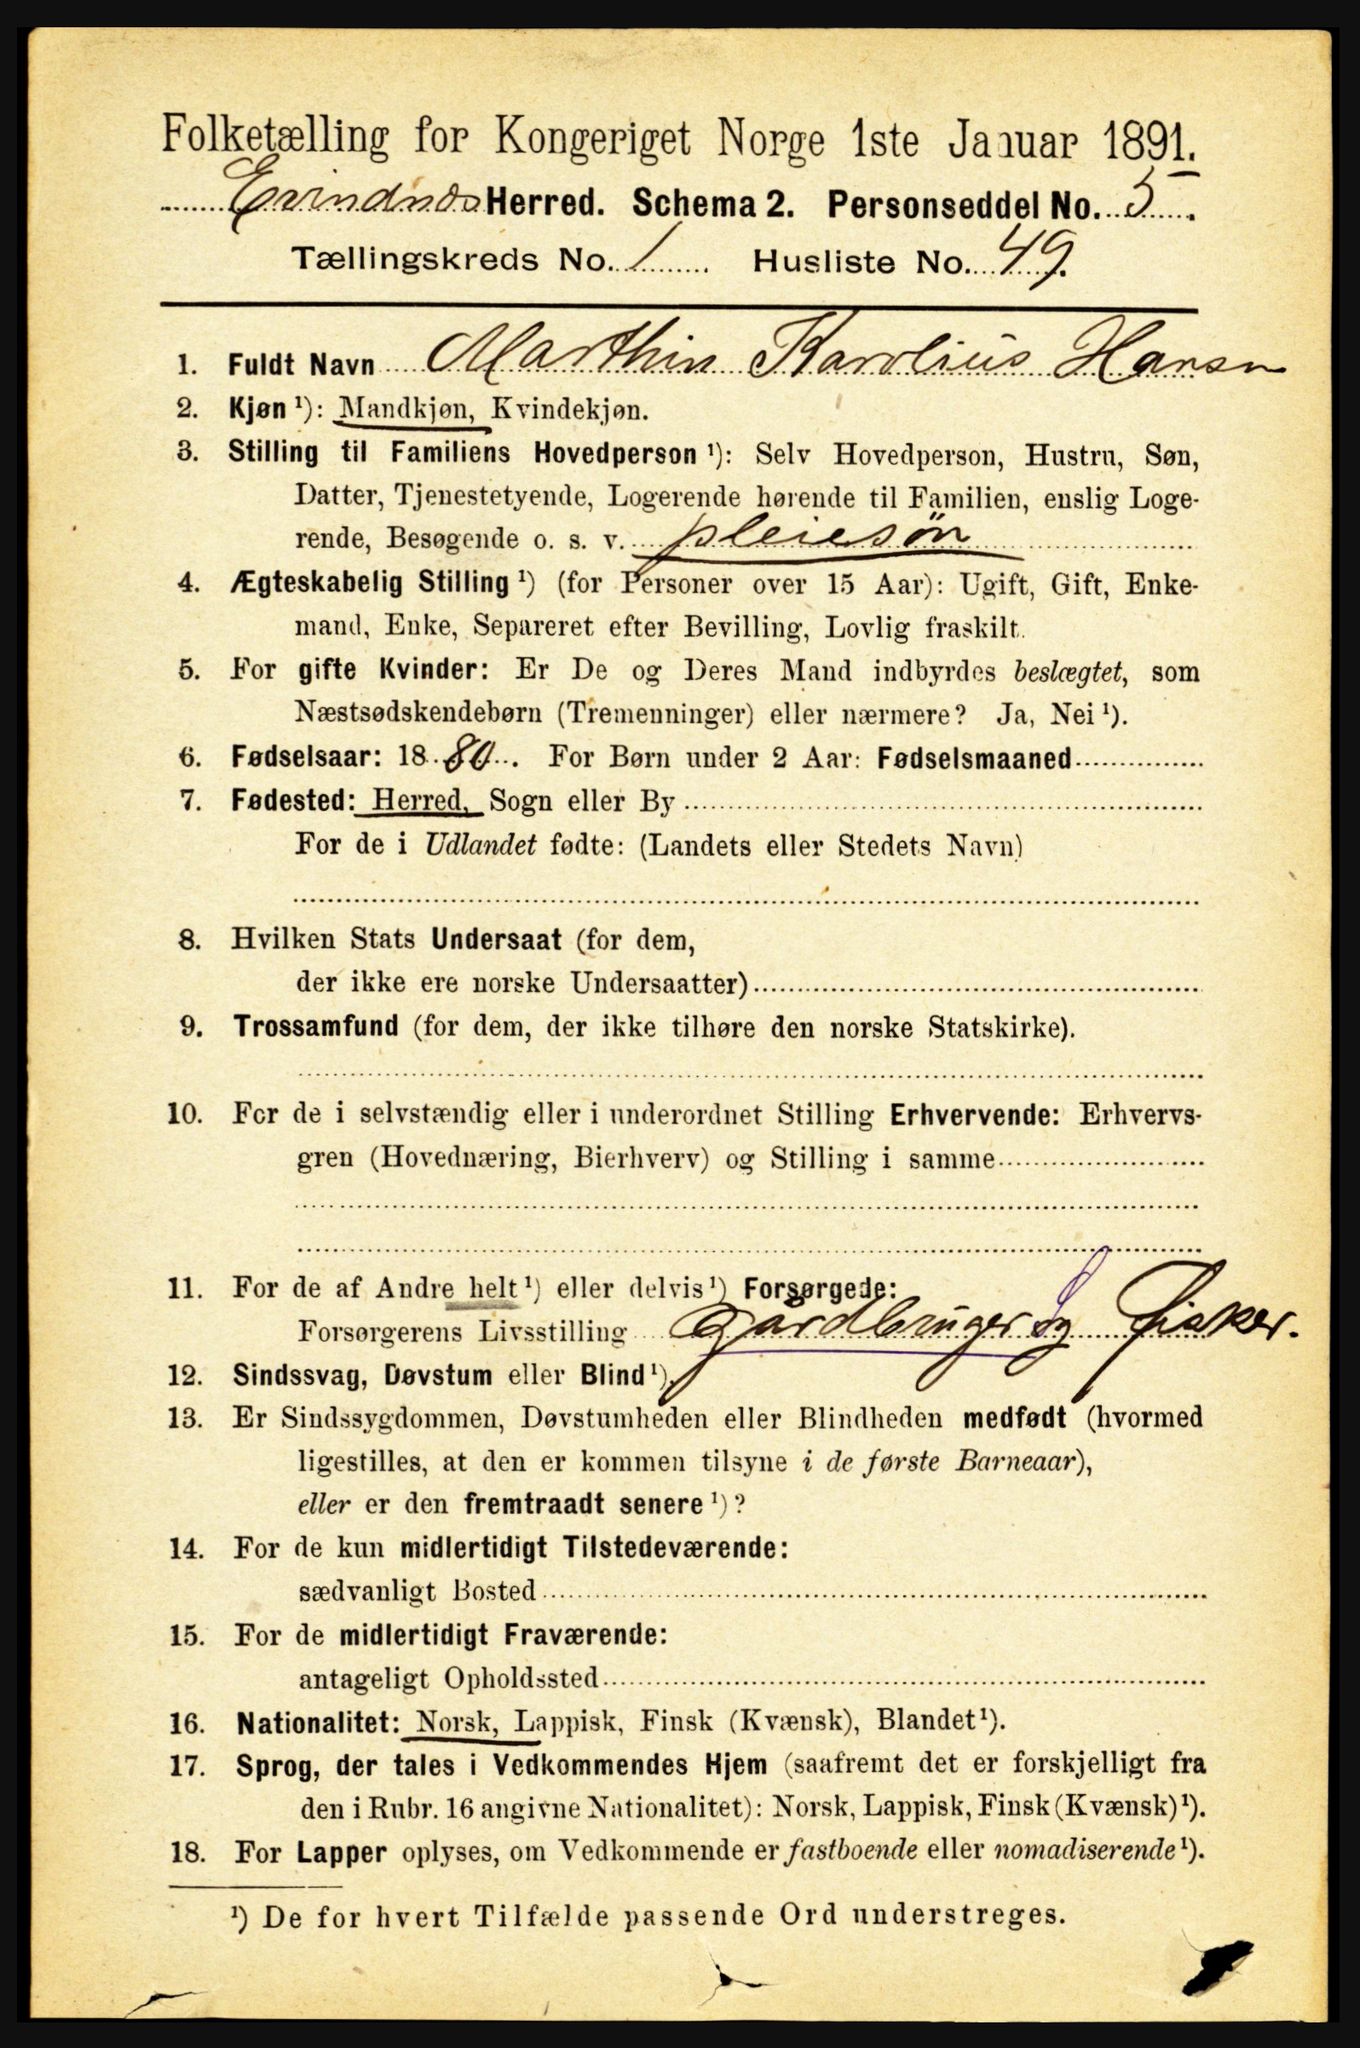 Folketælling for Kongeriget Norge 1ste Januar 1891.
Evindnæs Herred. Schema 2. Personseddel No. 5.
Tællingskreds No. 1 Husliste No. 49.
1. Fuldt Navn Marthin Karolius Hansn
2. Kjøn ¹): Mandkjøn, Kvindekjøn.
3. Stilling til Familiens Hovedperson ¹): Selv Hovedperson, Hustru, Søn,
Datter, Tjenestetyende, Logerende hørende til Familien, enslig Loge-
rende, Besøgende o. s. v. pleiesøn
4. Ægteskabelig Stilling ¹) (for Personer over 15 Aar): Ugift, Gift, Enke-
mand, Enke, Separeret efter Bevilling, Lovlig fraskilt.
5. For gifte Kvinder: Er De og Deres Mand indbyrdes beslægtet, som
Næstsødskendebørn (Tremenninger) eller nærmere? Ja, Nei ¹).
6. Fødselsaar: 1880. For Børn under 2 Aar: Fødselsmaaned
7. Fødested: Herred, Sogn eller By
For de i Udlandet fødte: (Landets eller Stedets Navn)
8. Hvilken Stats Undersaat (for dem,
der ikke ere norske Undersaatter)
9. Trossamfund (for dem, der ikke tilhøre den norske Statskirke).
10. For de i selvstændig eller i underordnet Stilling Erhvervende: Erhvervs-
gren (Hovednæring, Bierhverv) og Stilling i samme
11. For de af Andre helt ¹) eller delvis ¹) Forsørgede:
Forsørgerens Livsstilling gårdbruger og Fisker.
12. Sindssvag, Døvstum eller Blind ¹).
13. Er Sindssygdommen, Døvstumheden eller Blindheden medfødt (hvormed
ligestilles, at den er kommen tilsyne i de første Barneaar),
eller er den fremtraadt senere ¹)?
14. For de kun midlertidigt Tilstedeværende:
sædvanligt Bosted
15. For de midlertidigt Fraværende:
antageligt Opholdssted
16. Nationalitet: Norsk, Lappisk, Finsk (Kvænsk), Blandet ¹).
17. Sprog, der tales i Vedkommendes Hjem (saafremt det er forskjelligt fra
den i Rubr. 16 angivne Nationalitet): Norsk, Lappisk, Finsk (Kvænsk) ¹).
18. For Lapper oplyses, om Vedkommende er fastboende eller nomadiserende ¹).
¹) De for hvert Tilfælde passende Ord understreges.